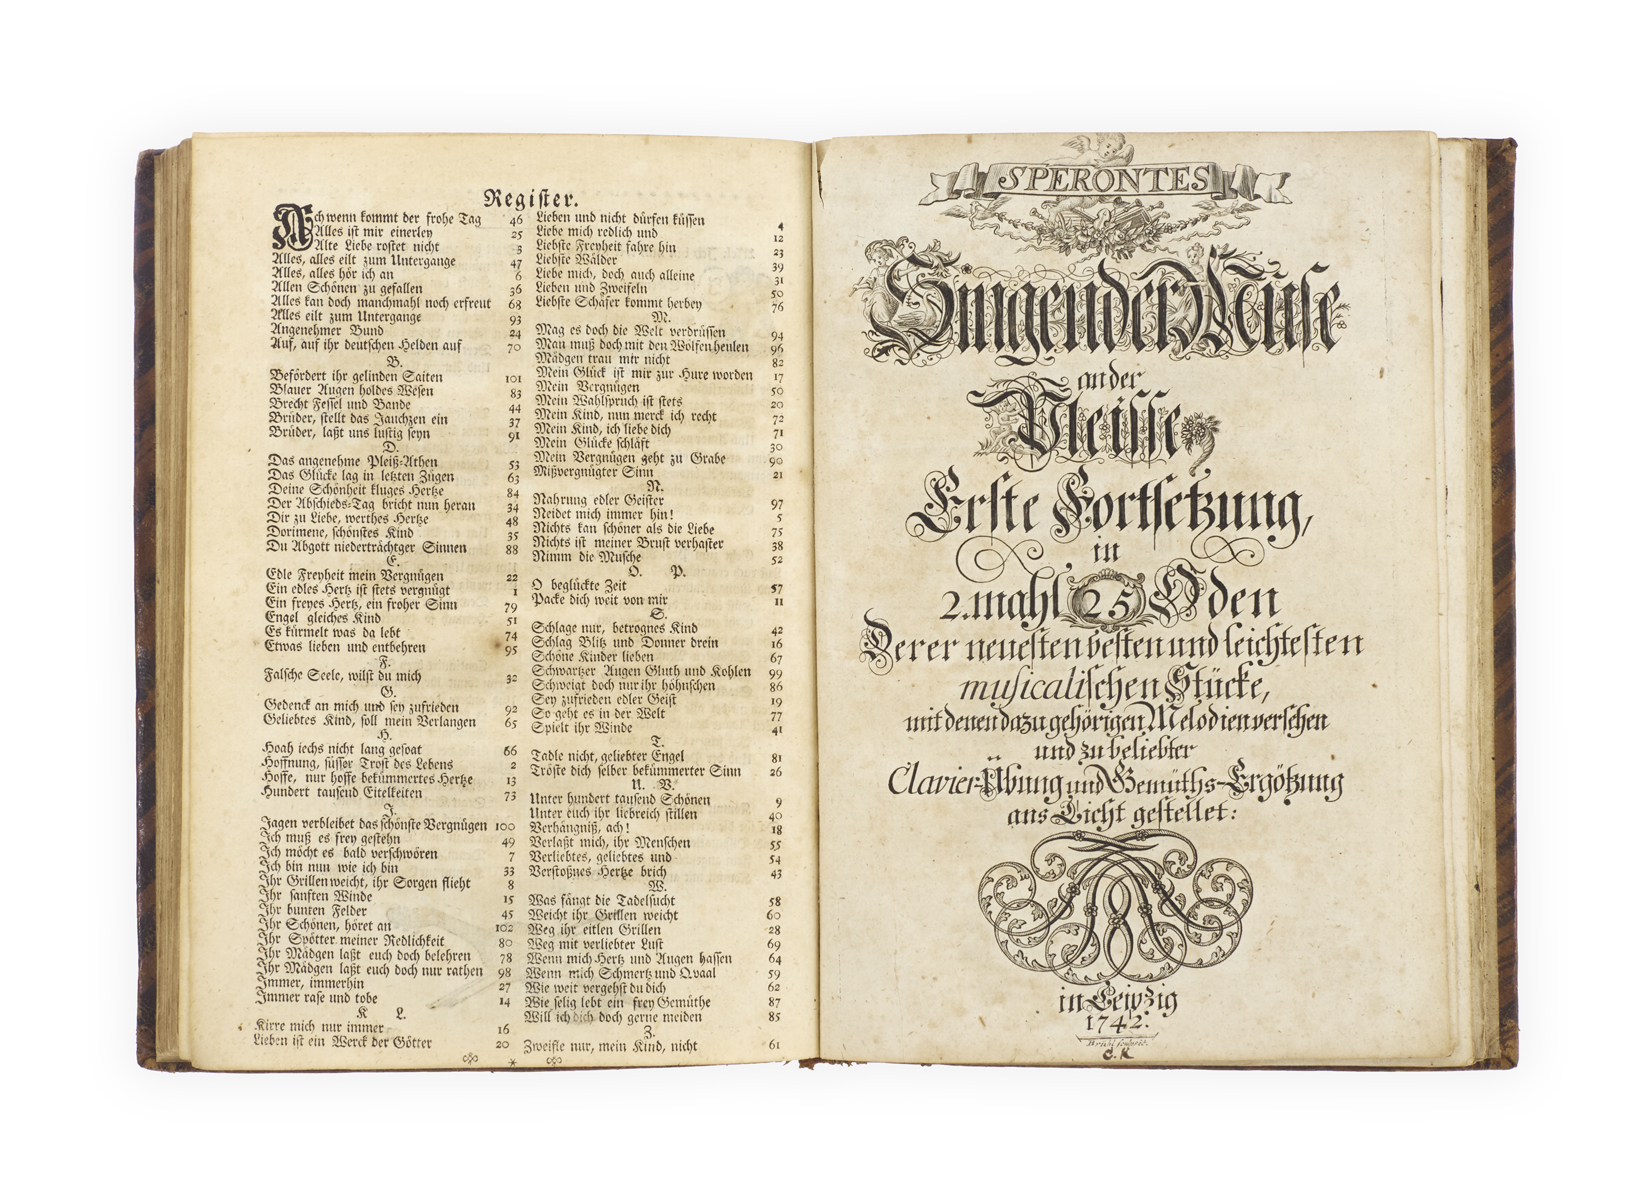 Register.
Ach wenn kommt der frohe Tag 46
Alles ist mir einerley 25
Alte Liebe rostet nicht 3
Alles, alles eilt zum Untergange 47
Alles, alles hör ich an 6
Allen Schönen zu gefallen 36
Alles kan doch manchmahl noch erfreut 68
Alles eilt zum Untergange 93
Angenehmer Bund 24
Auf, auf ihr deutschen Helden auf 70
B.
Befördert ihr gelinden Saiten 101
Blauer Augen holdes Wesen 83
Brecht Fessel und Bande 44
Brüder, stellt das Jauchzen ein 37
Brüder, laßt uns lustig seyn 91
D.
Das angenehme Pleiß-Athen 53
Das Glücke lag in letzten Zügen 63
Deine Schönheit kluges Hertze 84
Der Abschieds-Tag bricht nun heran 34
Dir zu Liebe, werthes Hertze 48
Dorimene, schönstes Kind 35
Du Abgott niederträchtger Sinnen 88
E.
Edle Freyheit mein Vergnügen 22
Ein edles Hertz ist stets vergnügt 1
Ein freyes Hertz, ein froher Sinn 79
Engel gleiches Kind 51
Es kürmelt was da lebt 74
Etwas lieben und entbehren 95
F.
Falsche Seele, wilst du mich 32
G.
Gedenck an mich und sey zufrieden 92
Geliebtes Kind, soll mein Verlangen 65
H.
Hoah iechs nicht lang gesoat 66
Hoffnung, süsser Trost des Lebens 2
Hoffe, nur hoffe bekümmertes Hertze 13
Hundert tausend Eitelkeiten 73
J.
Jagen verbleibet das schönste Vergnügen 100
Ich muß es frey gestehn 49
Ich möcht es bald verschwören 7
Ich bin nun wie ich bin 33
Ihr Grillen weicht, ihr Sorgen flieht 8
Ihr sanften Winde 15
Ihr bunten Felder 45
Ihr Schönen, höret an 102
Ihr Spötter meiner Redlichkeit 80
Ihr Mädgen laßt euch doch belehren 78
Ihr Mädgen laßt euch doch nur rathen 98
Immer, immerhin 27
Immer rase und tobe 14
K L.
Kirre mich nur immer 16
Lieben ist ein Werck der Götter 20
Lieben und nicht dürfen küssen 4
Liebe mich redlich und 12
Liebste Freyheit fahre hin 23
Liebste Wälder 39
Liebe mich, doch auch alleine 31
Lieben und Zweifeln 50
Liebste Schäfer kommt herbey 76
M.
Mag es doch die Welt verdrüssen 94
Man muß doch mit den Wölfen heulen 96
Mädgen trau mir nicht 82
Mein Glück ist mir zur Hure worden 17
Mein Vergnügen 50
Mein Wahlspruch ist stets 20
Mein Kind, nun merck ich recht 72
Mein Kind, ich liebe dich 71
Mein Glücke schläft 30
Mein Vergnügen geht zu Grabe 90
Mißvergnügter Sinn 21
N.
Nahrung edler Geister 97
Neidet mich immer hin! 5
Nichts kan schöner als die Liebe 75
Nichts ist meiner Brust verhaster 38
Nimm die Musche 52
O. P.
O beglückte Zeit 57
Packe dich weit von mir 11
S.
Schlage nur, betrognes Kind 42
Schlag Blitz und Donner drein 16
Schöne Kinder lieben 67
Schwartzer Augen Gluth und Kohlen 99
Schweigt doch nur ihr höhnschen 86
Sey zufrieden edler Geist 19
So geht es in der Welt 77
Spielt ihr Winde 41
T.
Tadle nicht, geliebter Engel 81
Tröste dich selber bekümmerter Sinn 26
U. V.
Unter hundert tausend Schönen 9
Unter euch ihr liebreich stillen 40
Verhängniß, ach! 18
Verlaßt mich, ihr Menschen 55
Verliebtes, geliebtes und 54
Verstoßnes Hertze brich 43
W.
Was fängt die Tadelsucht 58
Weicht ihr Grillen weicht 60
Weg ihr eitlen Grillen 28
Weg mit verliebter Lust 69
Wenn mich Hertz und Augen hassen 64
Wenn mich Schmertz und Qvaal 59
Wie weit vergehst du dich 62
Wie selig lebt ein frey Gemüthe 87
Will ich dich doch gerne meiden 85
Z.
Zweifle nur, mein Kind, nicht 61
SPERONTES
Singender Muse
an der
Pleisse
Erste Fortsetzung,
in
2. mahl 25 Oden
Derer neuesten besten und leichtesten
musicalischen Stücke,
mit denen dazu gehörigen Melodien versehen
und zu beliebter
Clavier-Übung und Gemüths-Ergötzung
ans Licht gestellet:
in Leipzig
1742.
Brühl sculpsit.
C. K